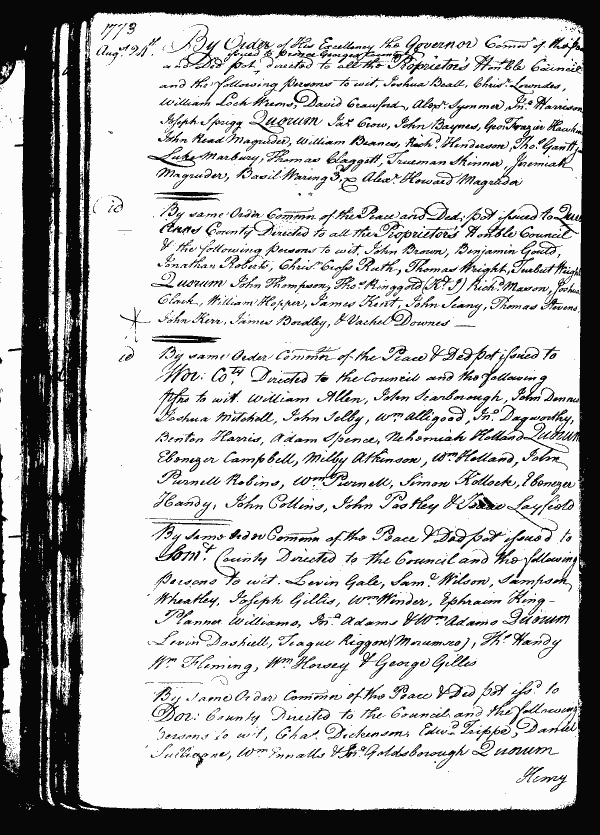 1773
Augt. 24th. By Order of His Excellency the Governor Comn. of the
issued to Prince Georges County
and Ded pot. directed to all the Proprietor's Honble Council
and the following persons to wit, Joshua Beall, Chrisr. Lowndes,
William Lock Weems, David Craufurd, Alexr. Symmer, Jno. Harrison
Joseph Sprigg Quorum Jas. Crow, John Baynes, Geo: Frazier Hawkins
John Read Magruder, William Beanes, Richd. Henderson, Thos. Gantt
Luke Marbury, Thomas Claggett, Trueman Skinner, Jeremiah
Magruder, Basil Waring 3d, & Alexr. Howard Magruder
id By same Order Common of the Peace and Ded: pot issued to Queen
Anns County Directed to all the Proprietor's Honble Council
& the following persons to wit, John Brown, Benjamin Gould,
Jonathan Roberts, Chrisr. Cross Ruth, Thomas Wright, Turbut Wright
Quorum John Thompson, Thos. Ringgold (K. I) Richd. Mason, Joshua
Clark, William Hopper, James Kent, John Seany, Thomas Stevens,
John Kerr, James Bordley, & Vachel Downes
id By same Order Common of the Peace & Ded pot issued to
Wor: Coty. Directed to the Council and the following
psns to wit. William Allen, John Scarborough, John Dennis
Joshua Mitchell, John Selby, Wm Allegood, Jno. Dagworthy,
Benton Harris, Adam Spence, Nehemiah Holland Quorum
Ebenezer Campbell, Milby Atkinson, Wm Holland, John
Purnell Robins, Wm Purnell, Simon Kollock, Ebenezer
Handy, John Collins, John Postley & Layfield
By same Order Common of the Peace & Ded pot issued to
Somt. County Directed to the Council and the following
persons to wit. Levin Gale, Saml. Wilson, Sampson
Wheatley, Joseph Gillis, Wm Winder, Ephraim King
Planner Williams, Jno. Adams & Wm Adams Quorum
Levin Dashiell, Teague Riggen (Morumsco), Ths. Handy
Wm Fleming, Wm Horsey & George Gillis
By same Order Common of the Peace & Ded pot issd. to
Dor: County Directed to the Council and the following
persons to wit, Chas. Dickenson, Edwd. Trippe, Daniel
Sullivane, Wm Ennalls & Jno. Goldsborough Quorum
Henry